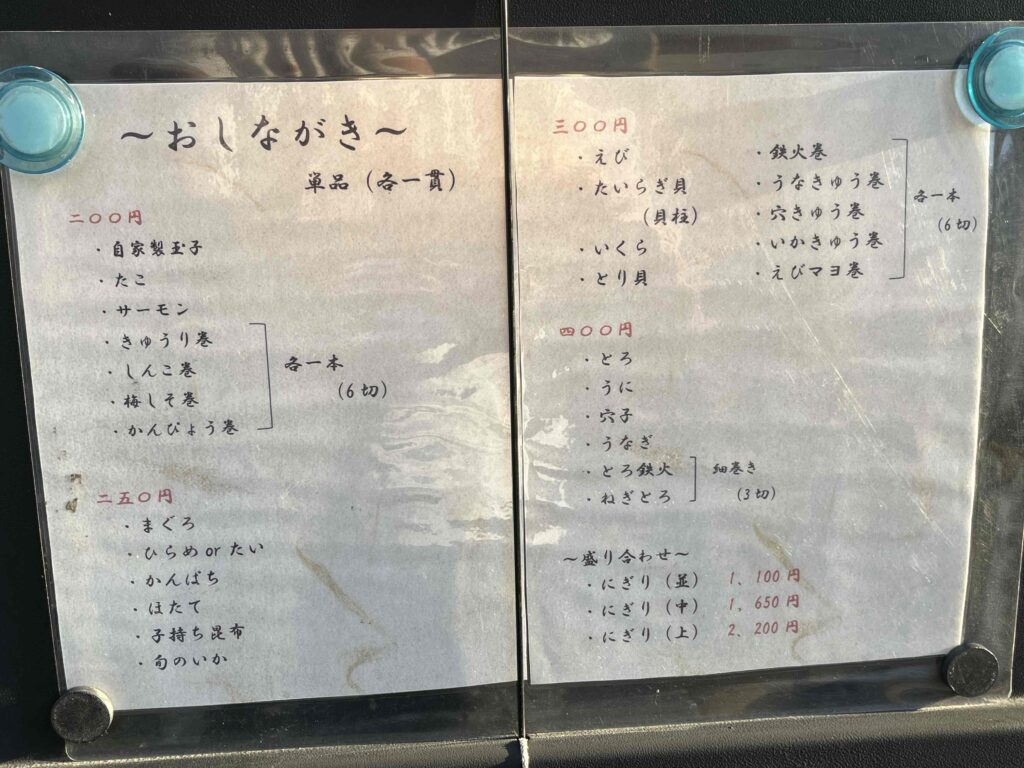 ～おしながき～
単品（各一貫）
二〇〇円
・自家製玉子
・たこ
・サーモン
・きゅうり巻
・しんこ巻
・梅しそ巻
・かんぴょう巻
各一本
（6切）
二五〇円
・まぐろ
・ひらめorたい
・かんぱち
・ほたて
・子持ち昆布
・旬のいか
三〇〇円
・えび
・たいらぎ貝
（貝柱）
・いくら
・とり貝
・鉄火巻
・うなきゅう巻
・穴きゅう巻
・いかきゅう巻
・えびマヨ巻
各一本
（6切）
四〇〇円
・とろ
・うに
・穴子
・うなぎ
・とろ鉄火
・ねぎとろ
細巻き
（3切）
～盛り合わせ～
・にぎり（並） 1、100円
・にぎり（中） 1、650円
・にぎり（上） 2、200円